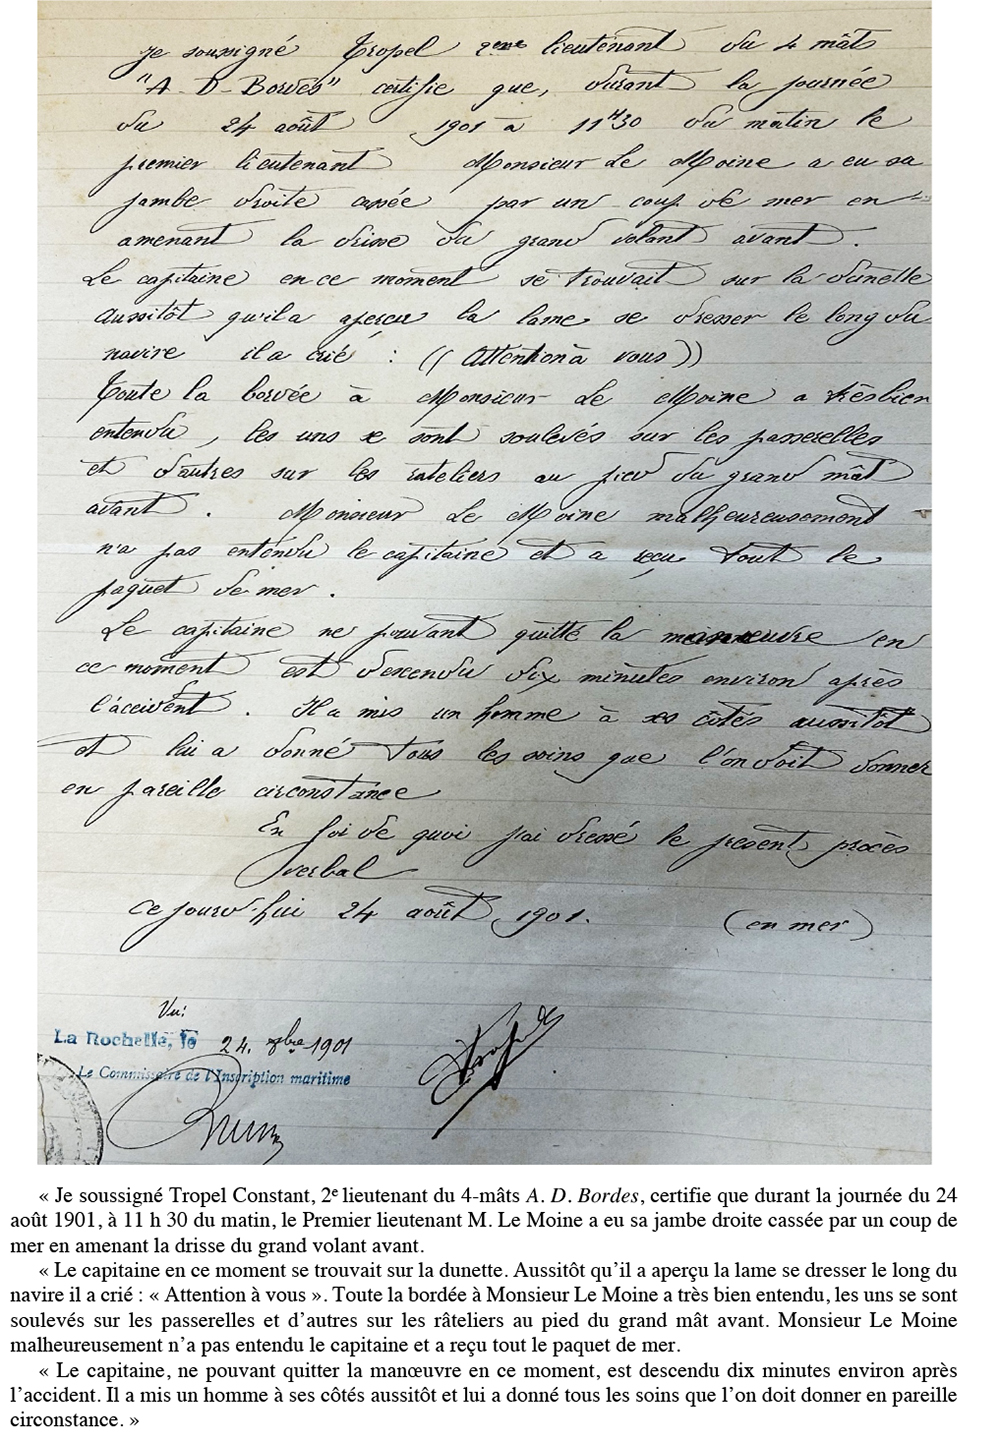 Je soussigné Tropel 2eme lieutenant du 4 mâts
"A-D-Bordes" certifie que, durant la journée
du 24 août 1901 à 11H30 du matin le
premier lieutenant Monsieur Le Moine a eu sa
jambe droite cassée par un coup de mer en
amenant la drisse du grand volant avant.
Le capitaine en ce moment se trouvait sur la dunette
aussitôt qu'il a aperçu la lame se dresser le long du
navire il a crié : ((Attention à vous))
Toute la bordée à Monsieur Le Moine a très bien
entendu, les uns se sont soulevés sur les passerelles
et d'autres sur les rateliers au pied du grand mât
avant. Monsieur Le Moine malheureusement
n'a pas entendu le capitaine et a reçu tout le
paquet de mer.
Le capitaine ne pouvant quitté la manœuvre en
ce moment est descendu dix minutes environ après
l'accident. Il a mis un homme à ses côtés aussitôt
et lui a donné tous les soins que l'on doit donner
en pareille circonstance
En foi de quoi j'ai dressé le présent procès
verbal
Ce jourd'hui 24 août 1901. (en mer)
Vu:
La Rochelle, le 24. 8bre 1901
Le Commissaire de l'Inscription maritime
« Je soussigné Tropel Constant, 2e lieutenant du 4-mâts A. D. Bordes, certifie que durant la journée du 24
août 1901, à 11 h 30 du matin, le Premier lieutenant M. Le Moine a eu sa jambe droite cassée par un coup de
mer en amenant la drisse du grand volant avant.
« Le capitaine en ce moment se trouvait sur la dunette. Aussitôt qu'il a aperçu la lame se dresser le long du
navire il a crié : « Attention à vous ». Toute la bordée à Monsieur Le Moine a très bien entendu, les uns se sont
soulevés sur les passerelles et d'autres sur les râteliers au pied du grand mât avant. Monsieur Le Moine
malheureusement n'a pas entendu le capitaine et a reçu tout le paquet de mer.
« Le capitaine, ne pouvant quitter la manœuvre en ce moment, est descendu dix minutes environ après
l'accident. Il a mis un homme à ses côtés aussitôt et lui a donné tous les soins que l'on doit donner en pareille
circonstance. »